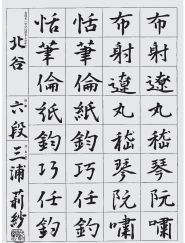 布射遼丸嵇琴阮嘯
布射遼丸嵇琴阮嘯
恬筆倫紙鈞巧任釣
恬筆倫紙鈞巧任釣
北谷 六段 三浦莉紗